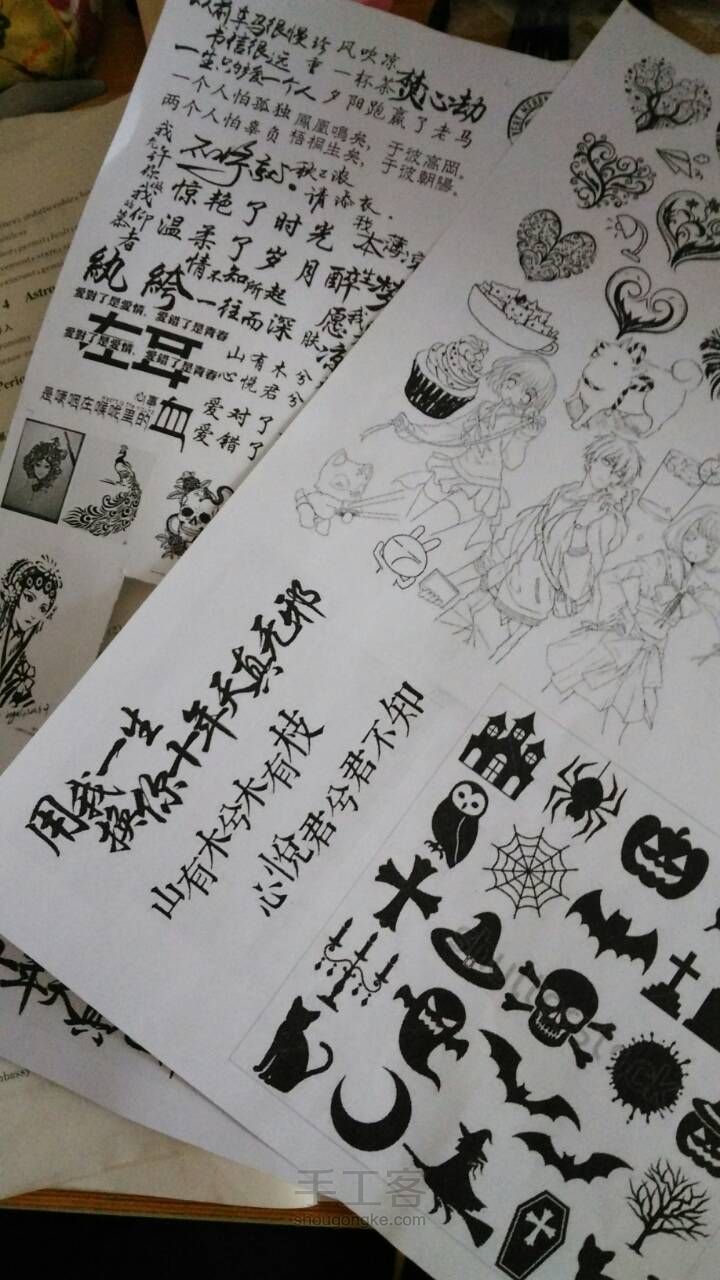 从前车马很慢
书信很远
一生只够爱一个人
一个人怕孤独
两个人怕辜负
风吹凉
一杯茶
夕阳跑赢了老马
焚心劫
鳳凰鳴矣,于彼高岡。
梧桐生矣,于彼朝陽。
不将就
秋已凉
请添衣.
惊艳了时光
温柔了岁月
情不知所起
一往而深
醉生梦
紈絝
愛對了是愛情,愛錯了是青春
左耳
愛對了是愛情,愛錯了是青春
心事
是哽咽在喉咙里的血
山有木兮
心悦君兮
爱对了
爱错了
用我一生
换你十年天真无邪
山有木兮木有枝
心悦君兮君不知
手工客
shougongke.com